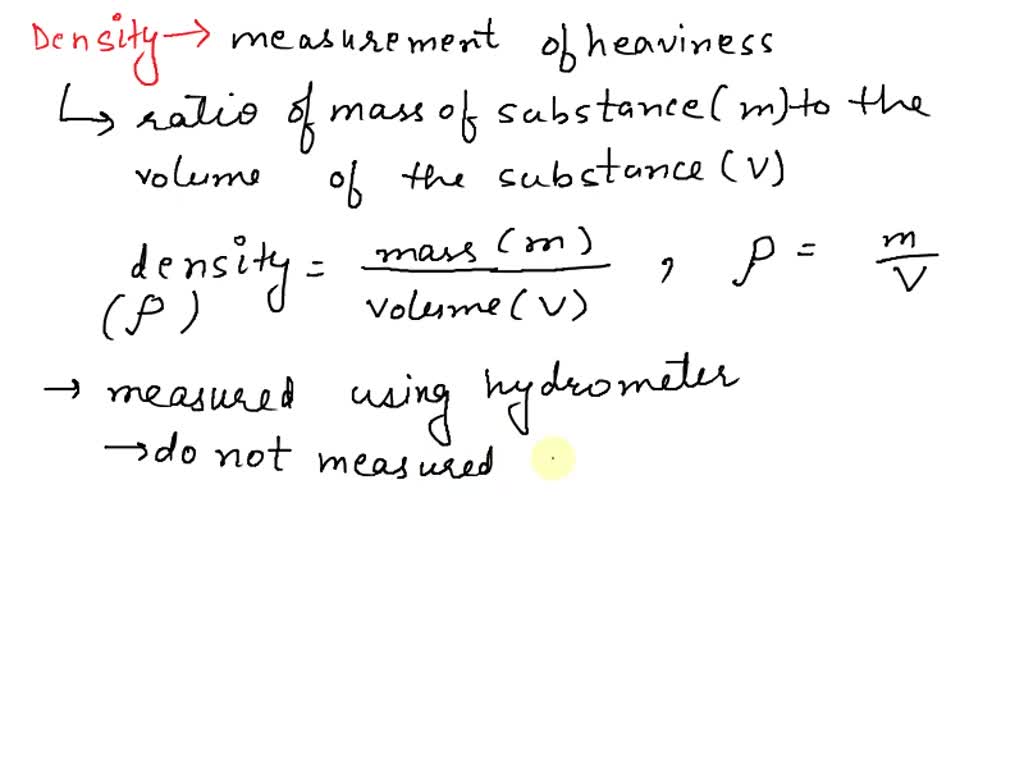 Density → measurement of heaviness
↳ ratio of mass of substance (m) to the
volume of the substance (V)
density (ρ) = mass (m) / volume (V) , ρ = m / V
→ measured using hydrometer
→ do not measured